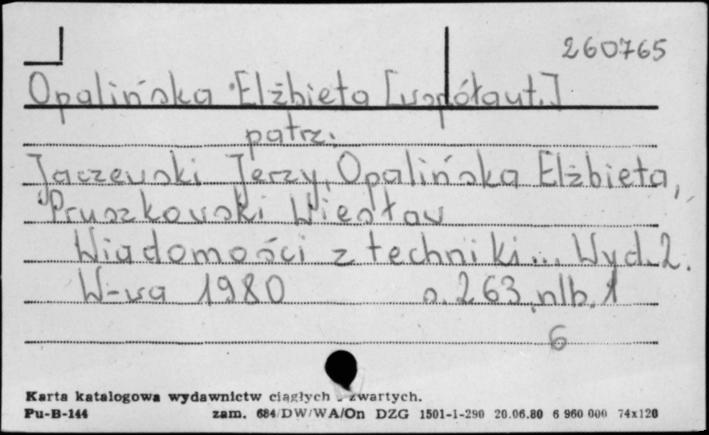 260765
Opalińska Elżbieta [współaut.]
patrz.
Jaczewski Jerzy, Opalińska Elżbieta,
Pruszkowski Wiesław
Wiadomości z techniki... Wyd. 2.
W-wa 1980 s. 263, nlb. 1
6
Karta katalogowa wydawnictw ciągłych i zwartych.
Pu-B-144 zam. 684/DW/WA/On DZG 1501-1-290 20.06.80 6 960 000 74x120